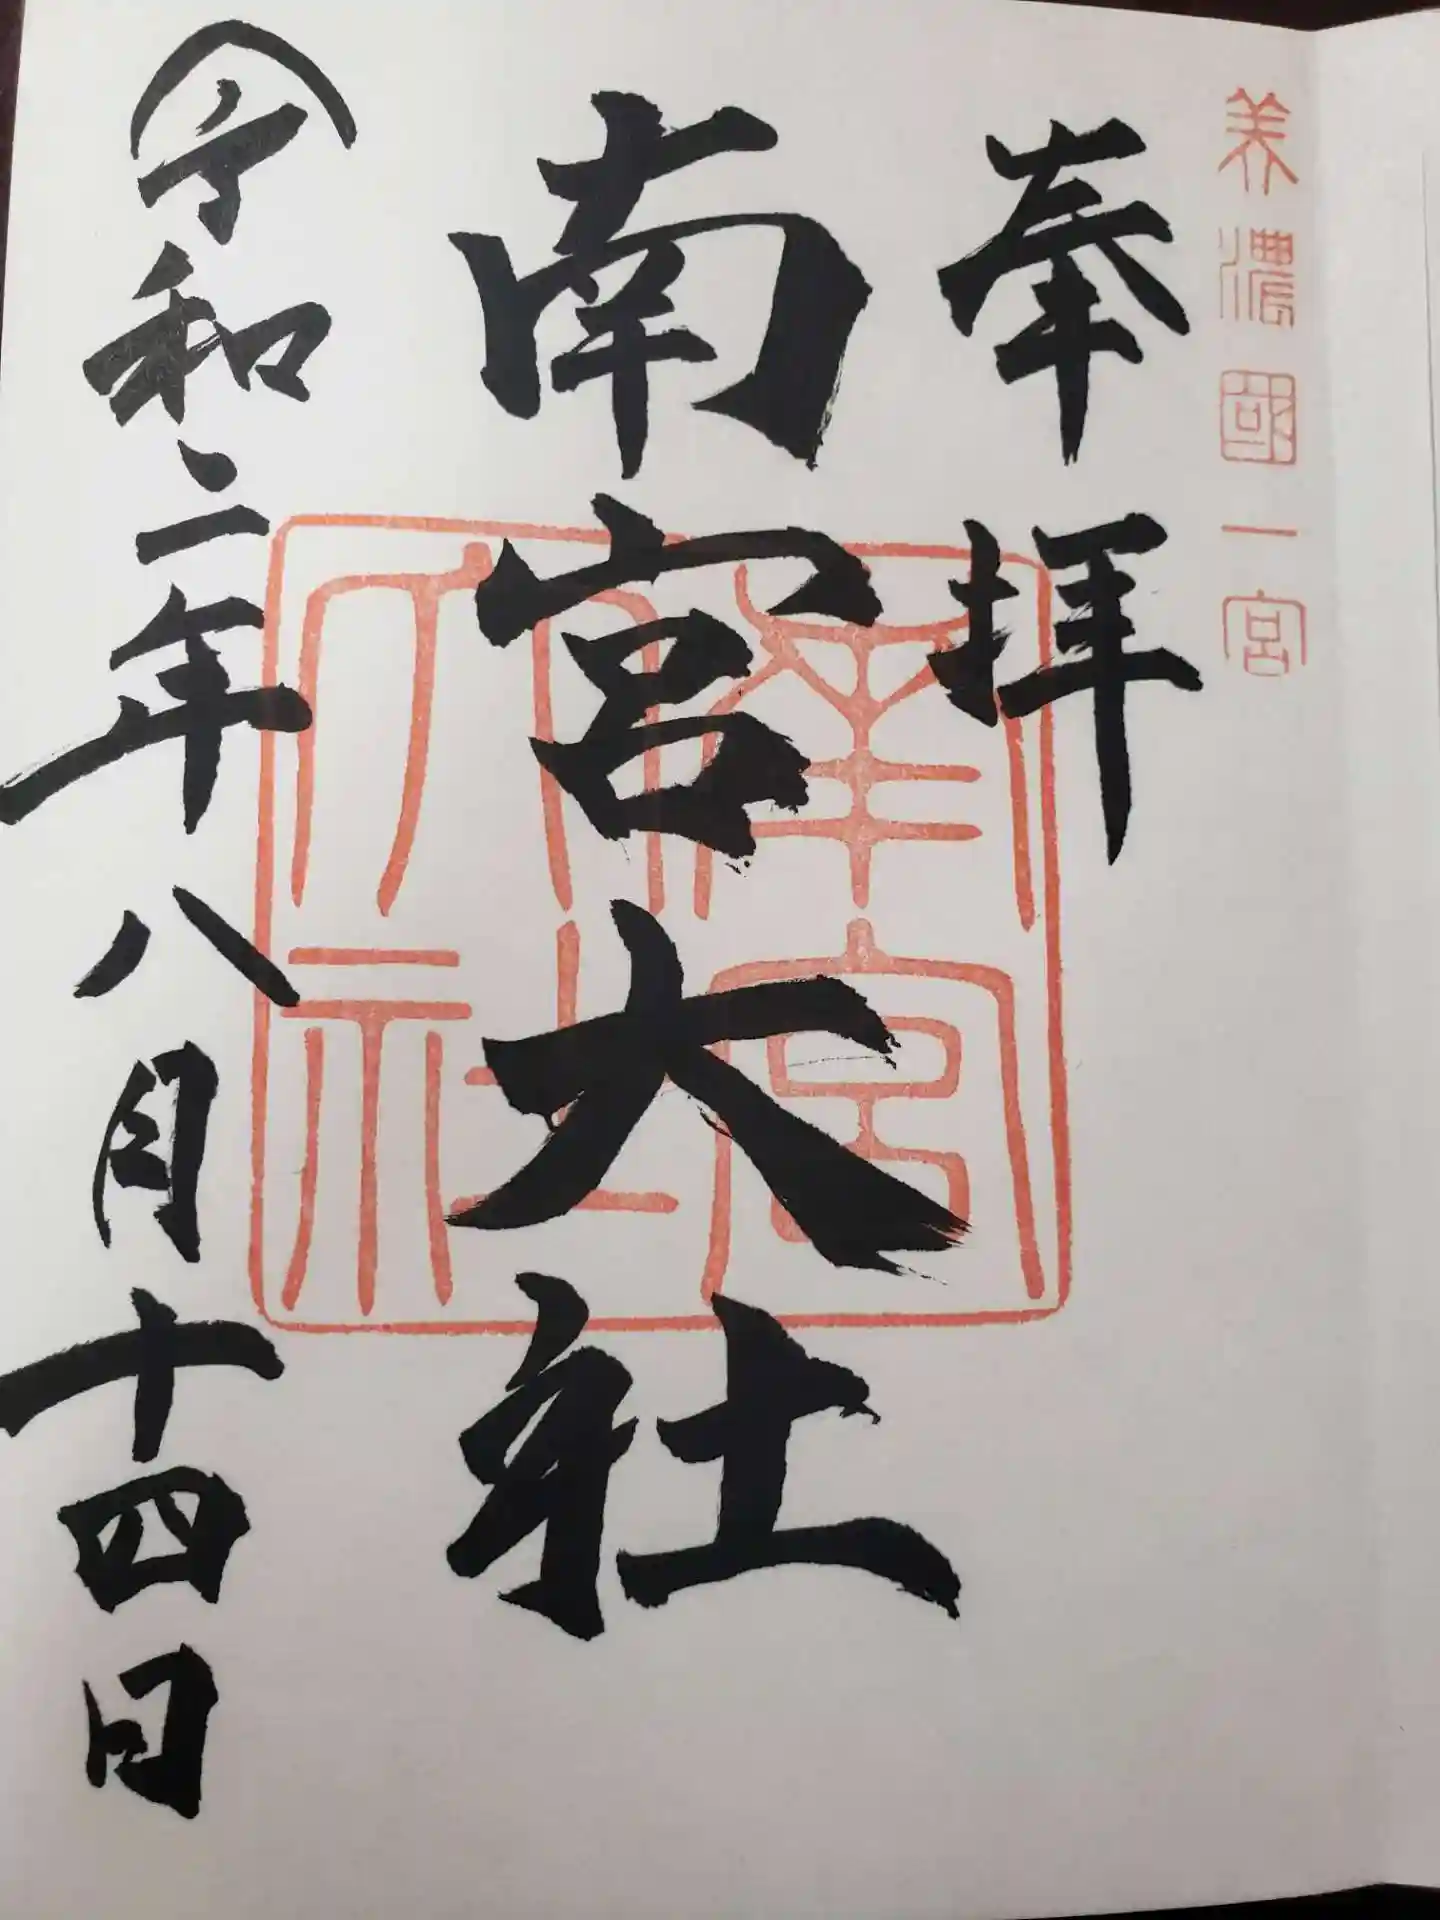 美濃國一宮
奉拝
南宮大社
令和二年八月十四日
南宮
大社